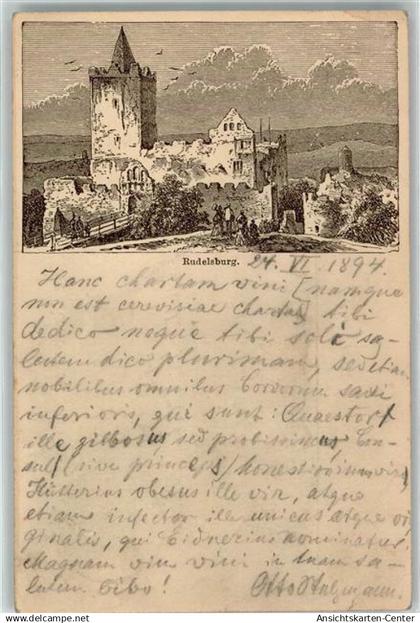 Rudelsburg. 24. VI. 1894.
Hanc chartam vini [namque
non est cerevisiae charta] tibi
dedico neque tibi soli sa-
lutem dico plurimam, sed etiam
nobilibus omnibus
inferioris, qui sunt: Quaestor
ille gilbosus sed probissimus Con-
sul (sive princeps) honestissimus vir,
Hütterius obesus ille vir, atque
etiam infector ille unicus atque ori
ginalis, qui nominatur
Magnam vim vini in tuam sa-
lutem bibo! Otto
© Ansichtskarten-Center